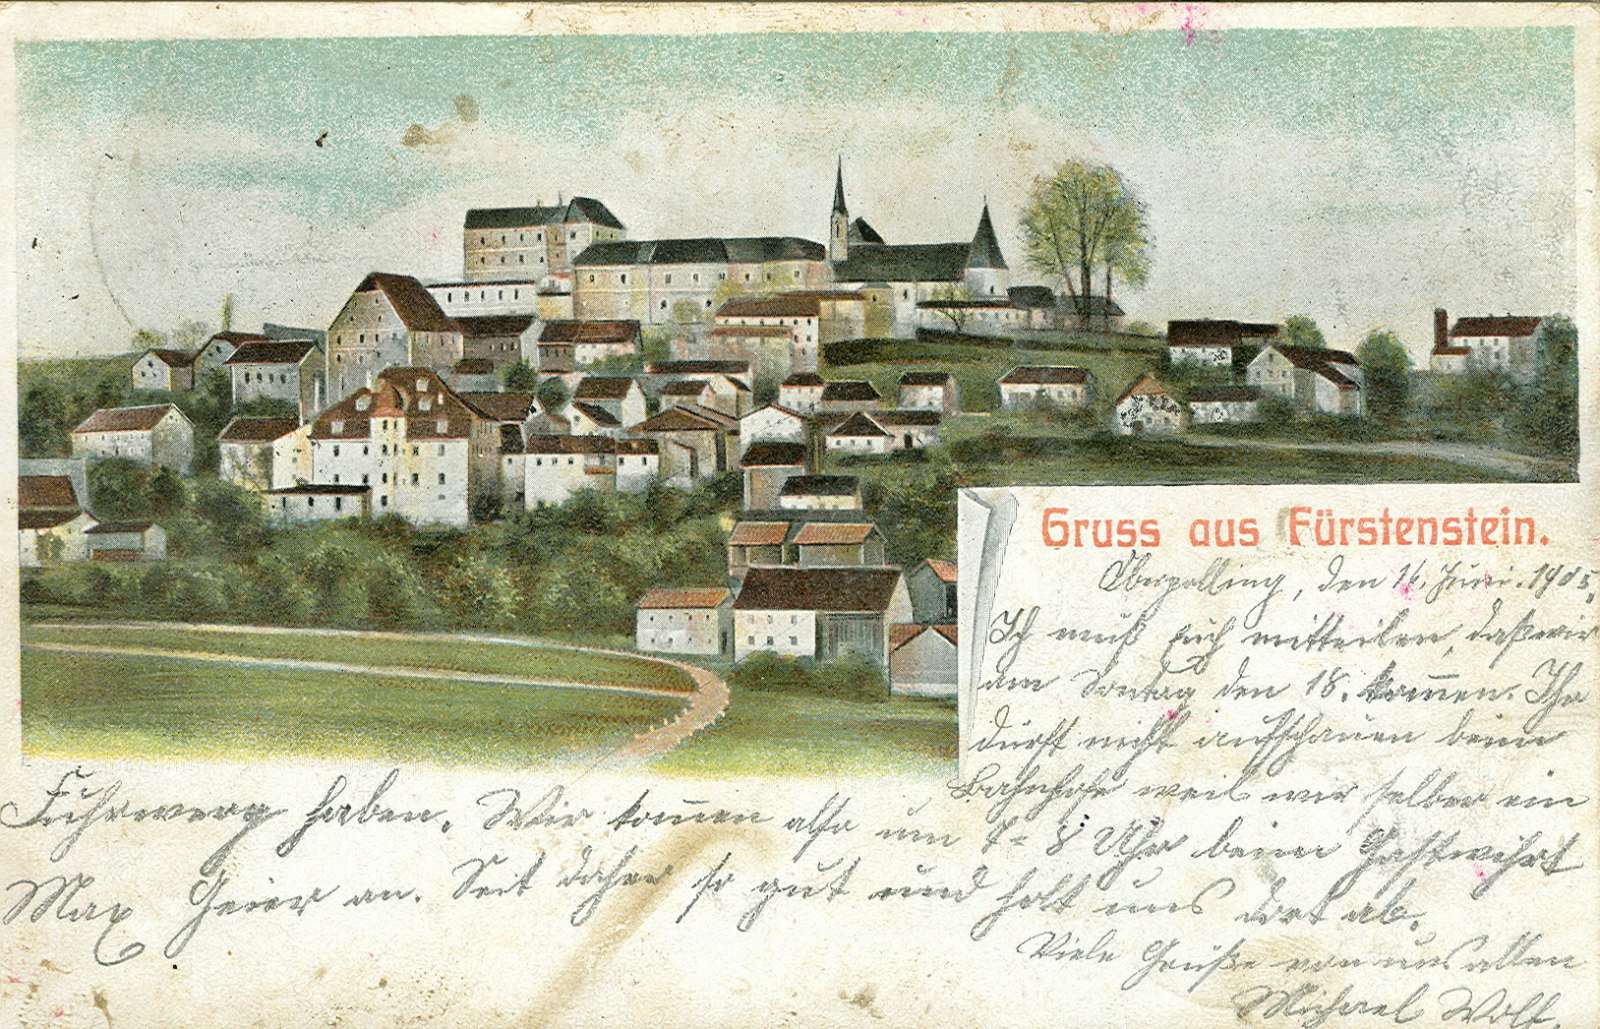 Gruss aus Fürstenstein.
Oberpolling, den 16. Juni. 1905,
Ich muß euch mitteilen, daß wir
am Sontag den 18. komen. Ihr
dürft nicht aufschauen beim
Bahnhofe weil wir selber ein
Fuhrwerg haben. Wir komen also um 7-8 Uhr beim Gastwihrt
Max Geier an. Seit daher so gut und holt uns dort ab.
Viele Grüße von uns allen
Michael Wolf